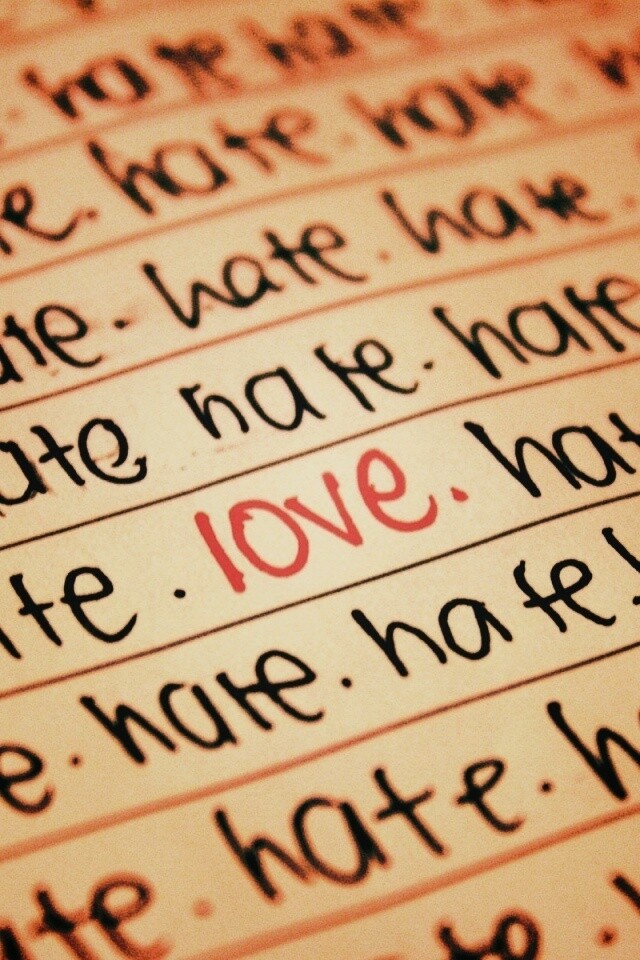 hate hate
hate. hate.
hate. hate.
hate. hate. hate
hate love. hate
hate. hate!
hate.